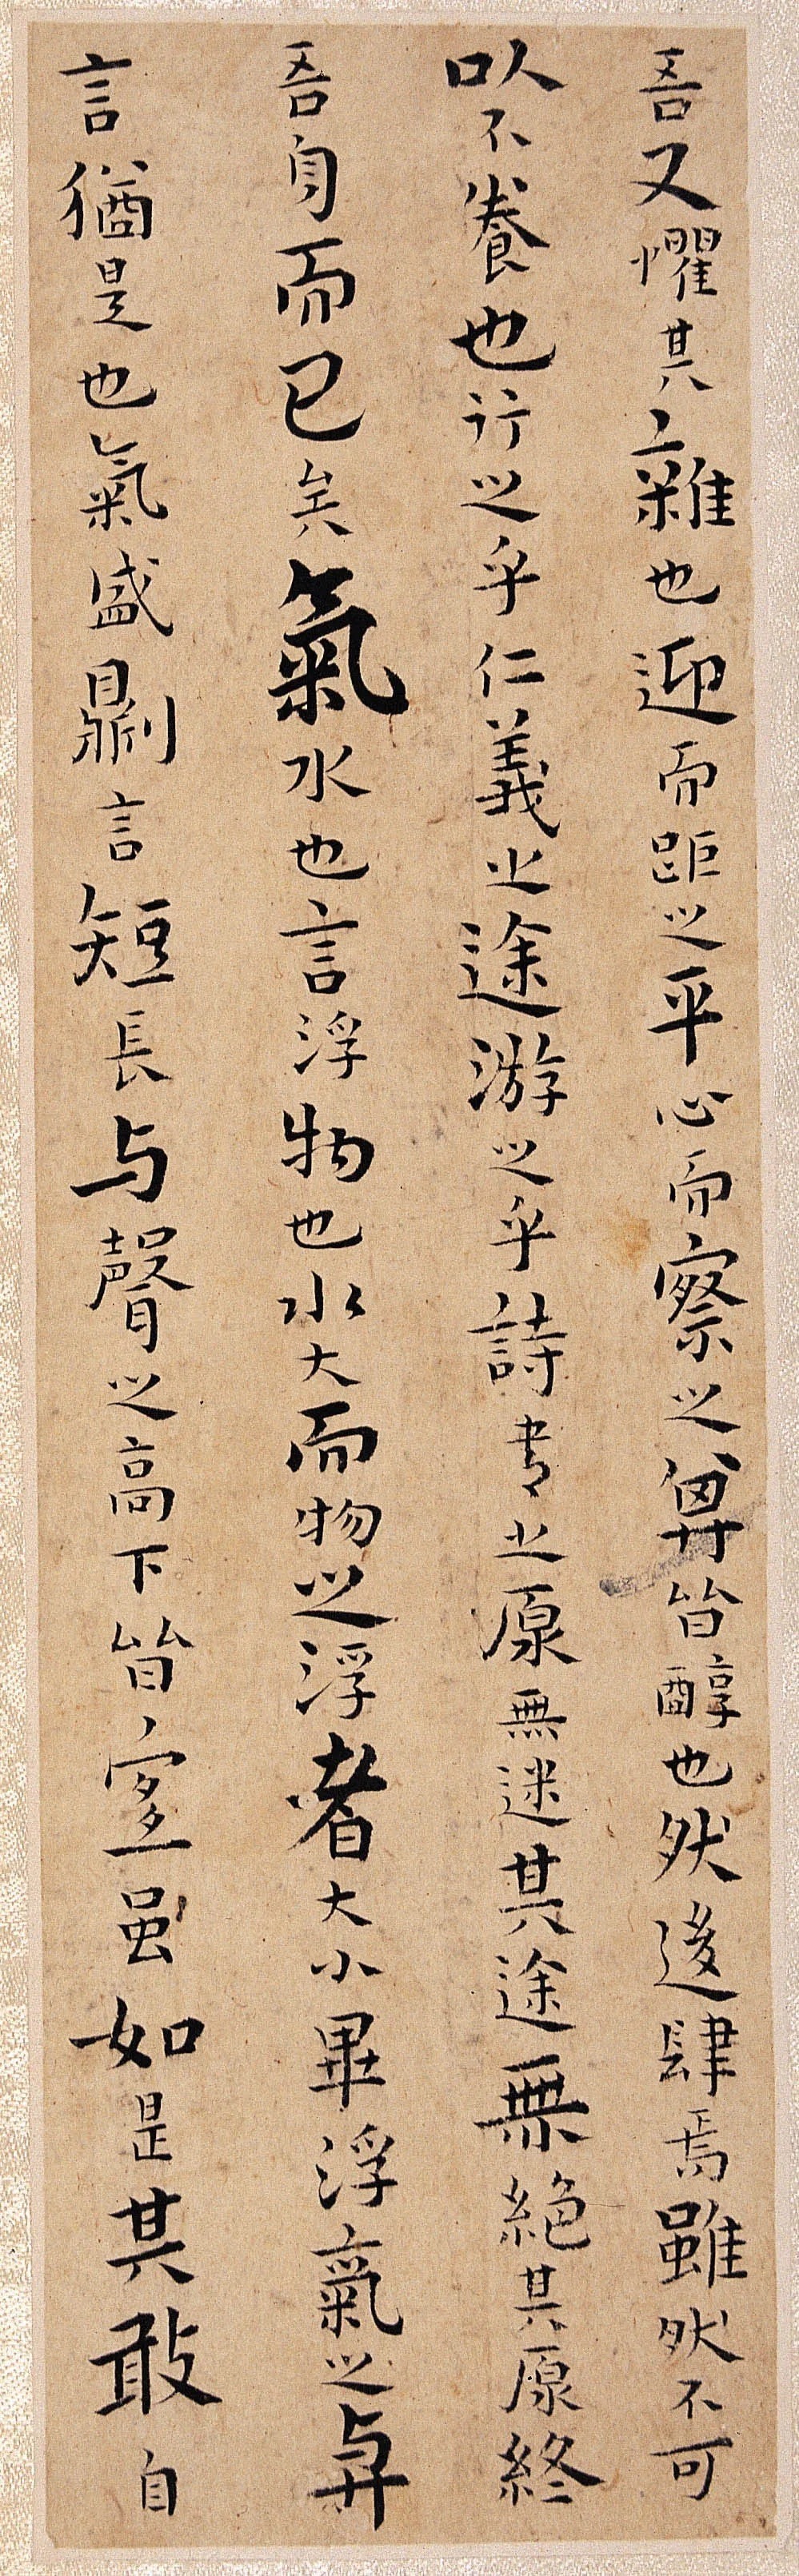 吾又懼其雜也迎而距之平心而察之其皆醇也然後肆焉雖然不可
以不養也行之乎仁義之途游之乎詩書之原無迷其途無絕其原終
吾身而已矣氣水也言浮物也水大而物之浮者大小畢浮氣之與
言猶是也氣盛則言短長与聲之高下皆宜虽如是其敢自